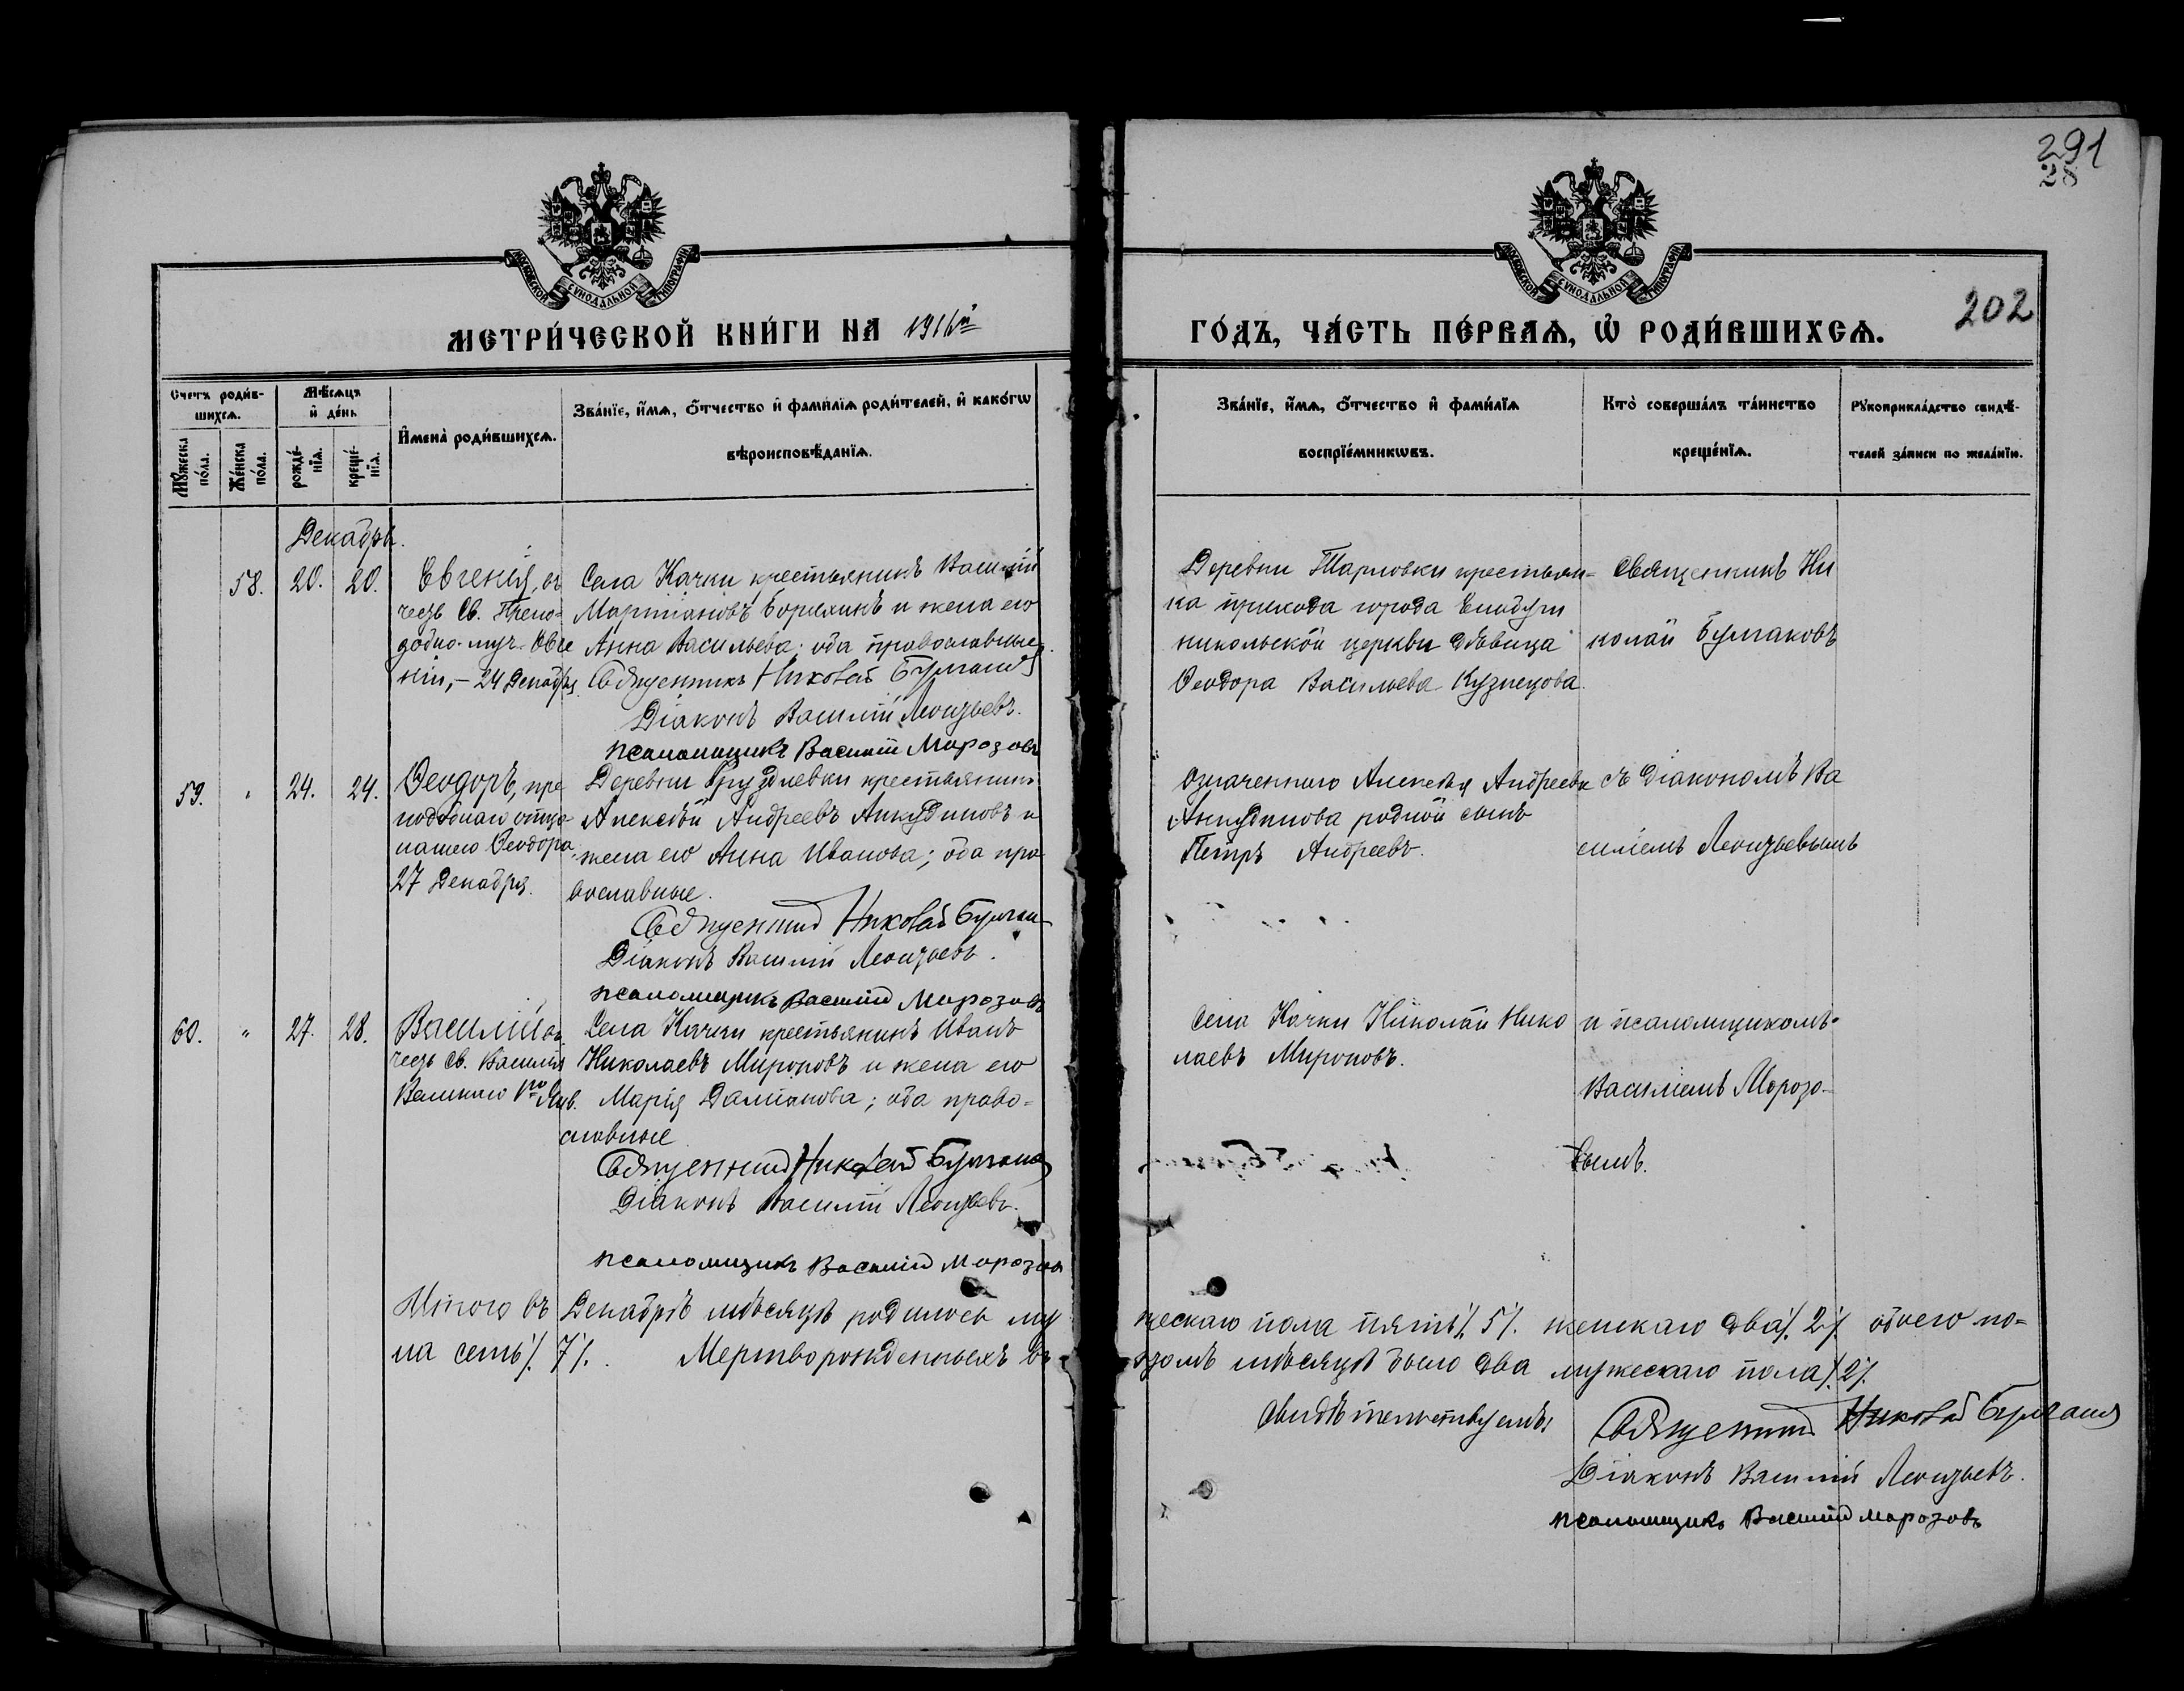 291
28
МОСКОВСКОЙ СѴНОДАЛЬНОЙ ТИПОГРАФІИ
МОСКОВСКОЙ СѴНОДАЛЬНОЙ ТИПОГРАФІИ
202
МЕТРИ́ЧЕСКОЙ КНИ́ГИ НА 1916й
ГО́ДЪ, ЧА́СТЬ ПЕ́РВАѦ, Ѡ҆ РОДИ́ВШИХСѦ.
Счетъ роди́в-
шихсѧ.
Мѣсѧцъ
и҆ де́нь
Мꙋ́жеска
по́ла.
Же́нска
по́ла.
рожде́-
нїѧ.
креще́-
нїѧ.
И҆мена̀ роди́вшихсѧ.
Зва́нїе, и҆́мѧ, ѻ҆́тчество и҆ фами́лїѧ роди́телей, и҆ како́гѡ
вѣроисповѣ́данїѧ.
Зва́нїе, и҆́мѧ, ѻ҆́тчество и҆ фами́лїѧ
воспрїе́мникѡвъ.
Кто̀ соверша́лъ та́инство
креще́нїѧ.
Рꙋкоприкла́дство свидѣ́-
телей за́писи по жела́нїю.
Декабрь.
58. 20. 20.
Евгенія, въ
честь Св. Препо-
добно-муч. Евге
ніи, - 24 Декабря.
Села Качки крестьянинъ Василій
Мартіановъ и жена его
Анна Васильева; оба православные.
Священникъ Николай Булгаковъ
Діаконъ Василій Леонтьевъ.
псаломщикъ Василій Морозовъ
Деревни Тарловки крестьяни-
ка прихода города Елабуги
никольской церкви дѣвица
Ѳеодора Васильева Кузнецова.
Священникъ Ни
колай Булгаковъ
59. " 24. 24.
Ѳеодоръ, пре
подобнаго отца
нашего Ѳеодора
27 Декабря.
Деревни Груздевки крестьянинъ
Алексѣй Андреевъ Анкудиновъ и
жена его Анна Иванова; оба пра
вославные.
Священникъ Николай Булгаков
Діаконъ Василій Леонтьевъ.
псаломщикъ Василій Морозовъ
Означеннаго Алексѣя Андреева
Анкудинова родной сынъ
Петръ Андреевъ.
съ Діакономъ Ва
силіемъ Леонтьевымъ
60. " 27. 28.
Василій въ
честь Св. Василія
Великаго 1го Янв.
Села Качки крестьянинъ Иванъ
Николаевъ Мироновъ и жена его
Марія Даміанова; оба право-
славные
Священникъ Николай Булгаковъ
Діаконъ Василій Леонтьевъ.
псаломщикъ Василій Морозовъ
Села Качки Николай Нико
лаевъ Мироновъ.
и псаломщикомъ
Василіемъ Морозо-
вымъ.
Итого въ Декабрѣ мѣсяцѣ родилось му
жескаго пола пять /. 5/. женскаго два /. 2/. обоего по-
ла семь /. 7/. Мертворожденныхъ въ
этомъ мѣсяцѣ было два мужескаго пола /. 2/.
Свидѣтельствуемъ:
Священникъ Николай Булгаковъ
Діаконъ Василій Леонтьевъ.
псаломщикъ Василій Морозовъ